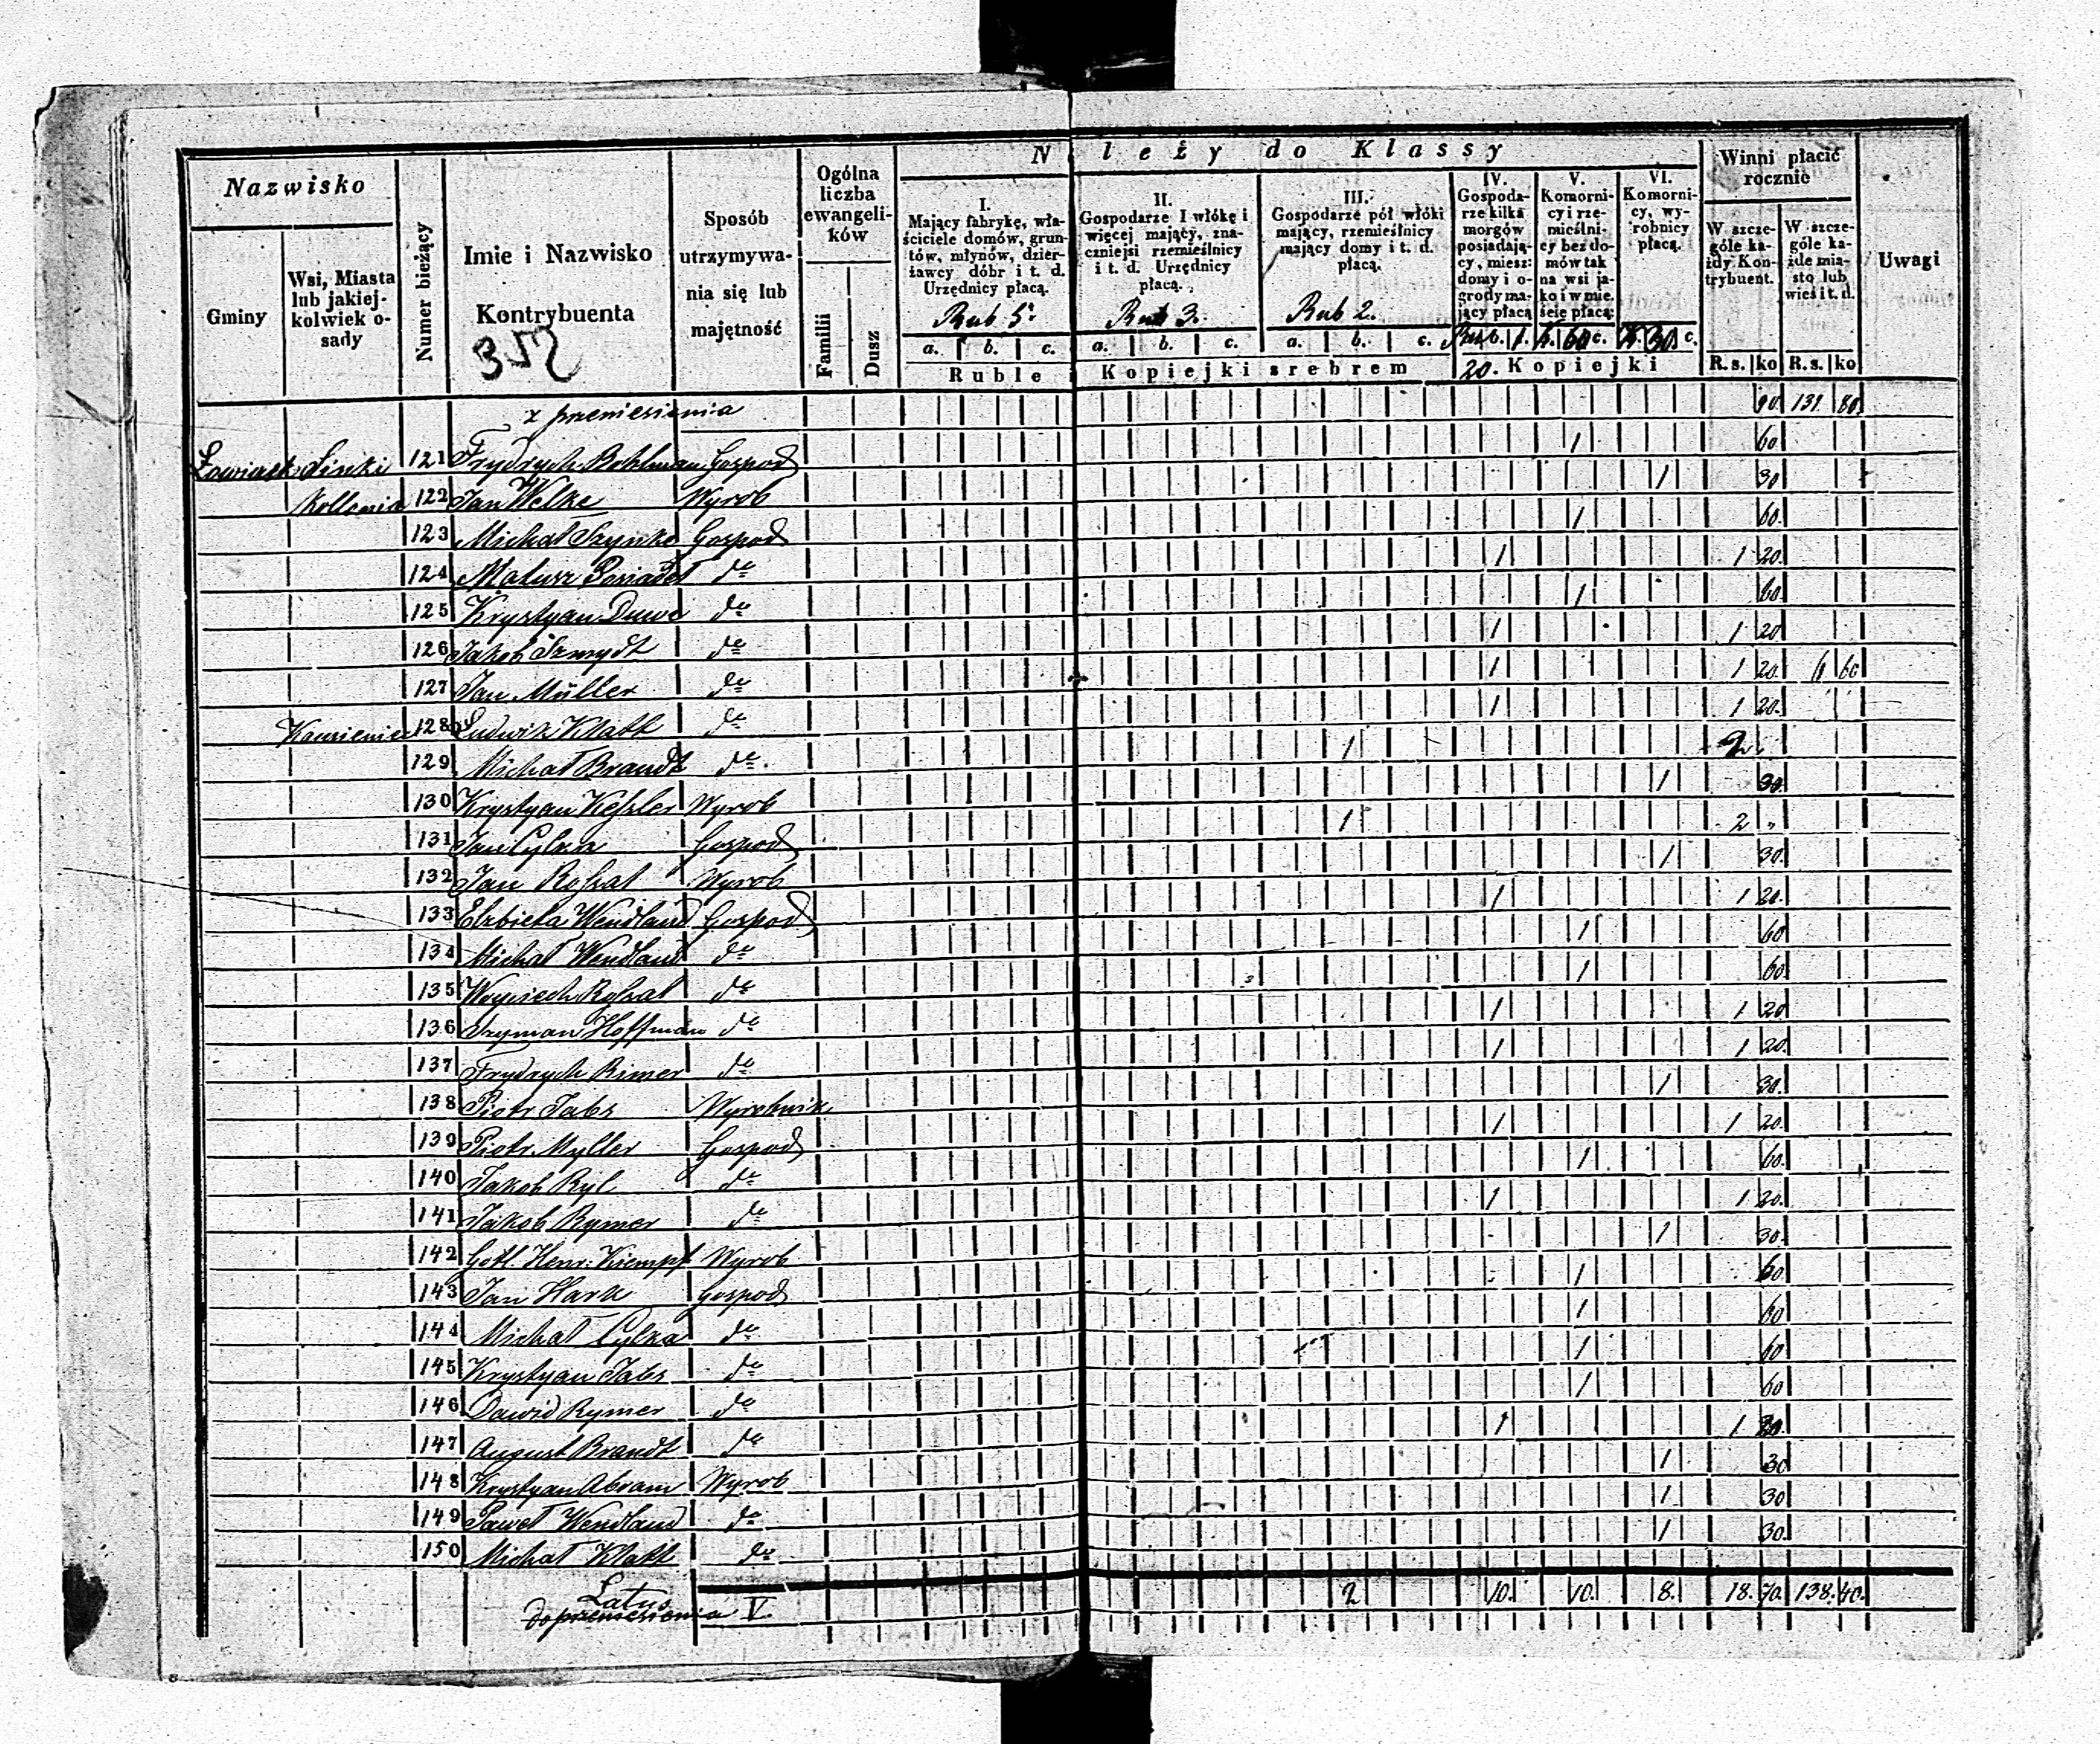 Nazwisko
Gminy
Wsi, Miasta lub jakiej-kolwiek o-sady
Numer bieżący
Imie i Nazwisko Kontrybuenta
Sposób utrzymywa-nia się lub majętność
Ogólna liczba ewangeli-ków
Familii
Dusz
N leży do Klassy
I. Mający fabrykę, wła-ściciele domów, grun-tów, młynów, dzier-żawcy dóbr i t. d. Urzędnicy płacą.
Rub 5.
II. Gospodarze I włókę i więcej mający, zna-czniejsi rzemieślnicy i t. d. Urzędnicy płacą.
Rub 3.
III. Gospodarze pół włóki mający, rzemieślnicy mający domy i t. d. płacą.
Rub 2.
IV. Gospoda-rze kilka morgów posiadają-cy, miesz: domy i o-grody ma-jący płacą
V. Komorni-cy i rze-mieślni-cy bez do-mów tak na wsi ja-ko i w mie-ście płacą:
VI. Komorni-cy, wy-robnicy płacą.
Winni płacić rocznie
W szcze-góle ka-żdy Kon-trybuent.
W szcze-góle ka-żde mia-sto lub wieś i t. d.
Uwagi
a. b. c. a. b. c. a. b. c. Rub. 1. K. 60 c. K. 30. c.
Ruble Kopiejki srebrem 20. Kopiejki R.s. ko R.s. ko
z przeniesienia 90. 131. 80
121 Frydrych Gospod 1 60
Kollonia 122 Jan Welke Wyrob 1 30
123 Michał Szynke Gospod 1 60.
124 Matusz do 1 1 20.
125 Krystyan Duwe do 1 60
126 Jakob Szmydt do 1 1 20
127 Jan Müller do 1 1 20. 6 60
128 Ludwik Klatt do 1 1 20.
129 Michał Brandt do. 1 2 "
130 Krystyan Kessler Wyrob 1 30.
131 Jan Cylka Gospod 1 2 "
132 Jan Rossat Wyrob 1 30.
133 Elzbieta Wendland Gospod 1 1 20.
134 Michał Wendland do 1 60
135 Woyciech Rossat do 1 60
136 Szyman Hoffman do 1 1 20
137 Frydrych Rimer do 1 1 20.
138 Piotr Jabs Wyrobnik 1 30.
139 Piotr Myller Gospod 1 1 20.
140 Jakob Ryl do 1 60.
141 Jakob Rymer do 1 1 20.
142 Gotl. Henr: Kiempf Wyrob 1 30.
143 Jan Hark Gospod 1 60
144 Michał Cylka do 1 60
145 Krystyan Jabs do 1 60
146 Dawid Rymer do 1 60
147 August Brandt do 1 1 20.
148 Krystyan Abram Wyrob 1 30
149 Paweł Wendland do 1 30
150 Michał Klatt do 1 30.
Latus 2 10. 10. 8. 18. 70. 138. 40.
do przeniesienia V